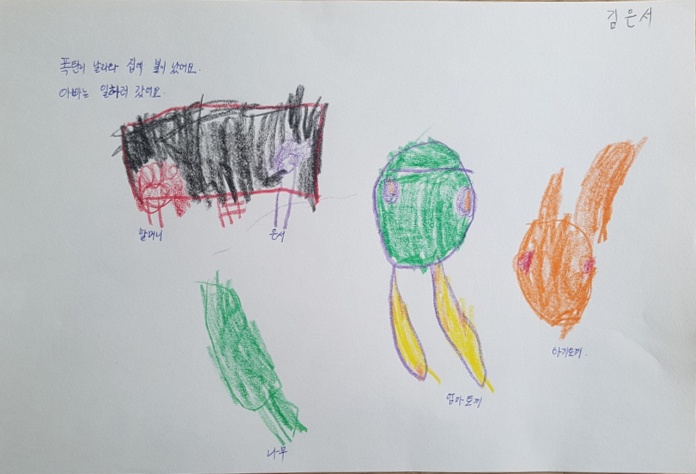 김은서
폭탄이 날라와 집에 불이 났어요.
아빠는 일하러 갔어요.
할머니
은서
나무
엄마토끼
아기토끼.